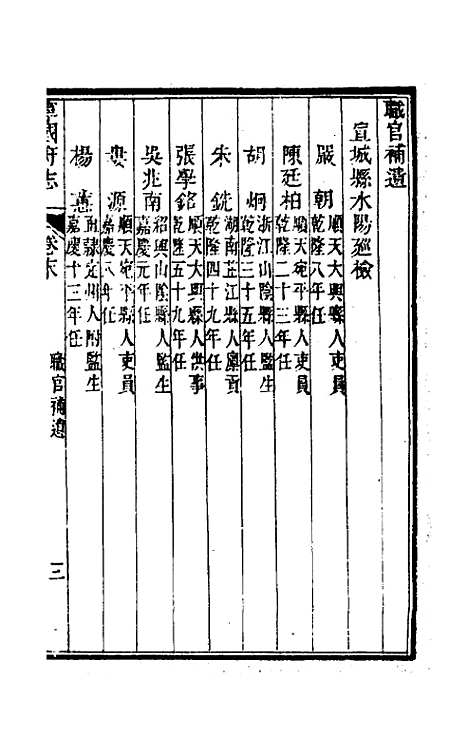 職官補遺
宣城縣水陽巡檢
嚴朝 順天大興縣人吏員
乾隆八年任
陳廷柏 順天宛平縣人吏員
乾隆二十三年任
胡炯 浙江山陰縣人監生
乾隆三十五年任
朱銑 湖南芷江縣人廩貢
乾隆四十九年任
張學銘 順天大興縣人供事
乾隆五十九年任
吳兆南 紹興山陰縣人監生
嘉慶元年任
婁源 順天宛平縣人吏員
嘉慶八年任
楊 直隸定州人附監生
嘉慶十三年任
寧國府志 卷末 職官補遺 三